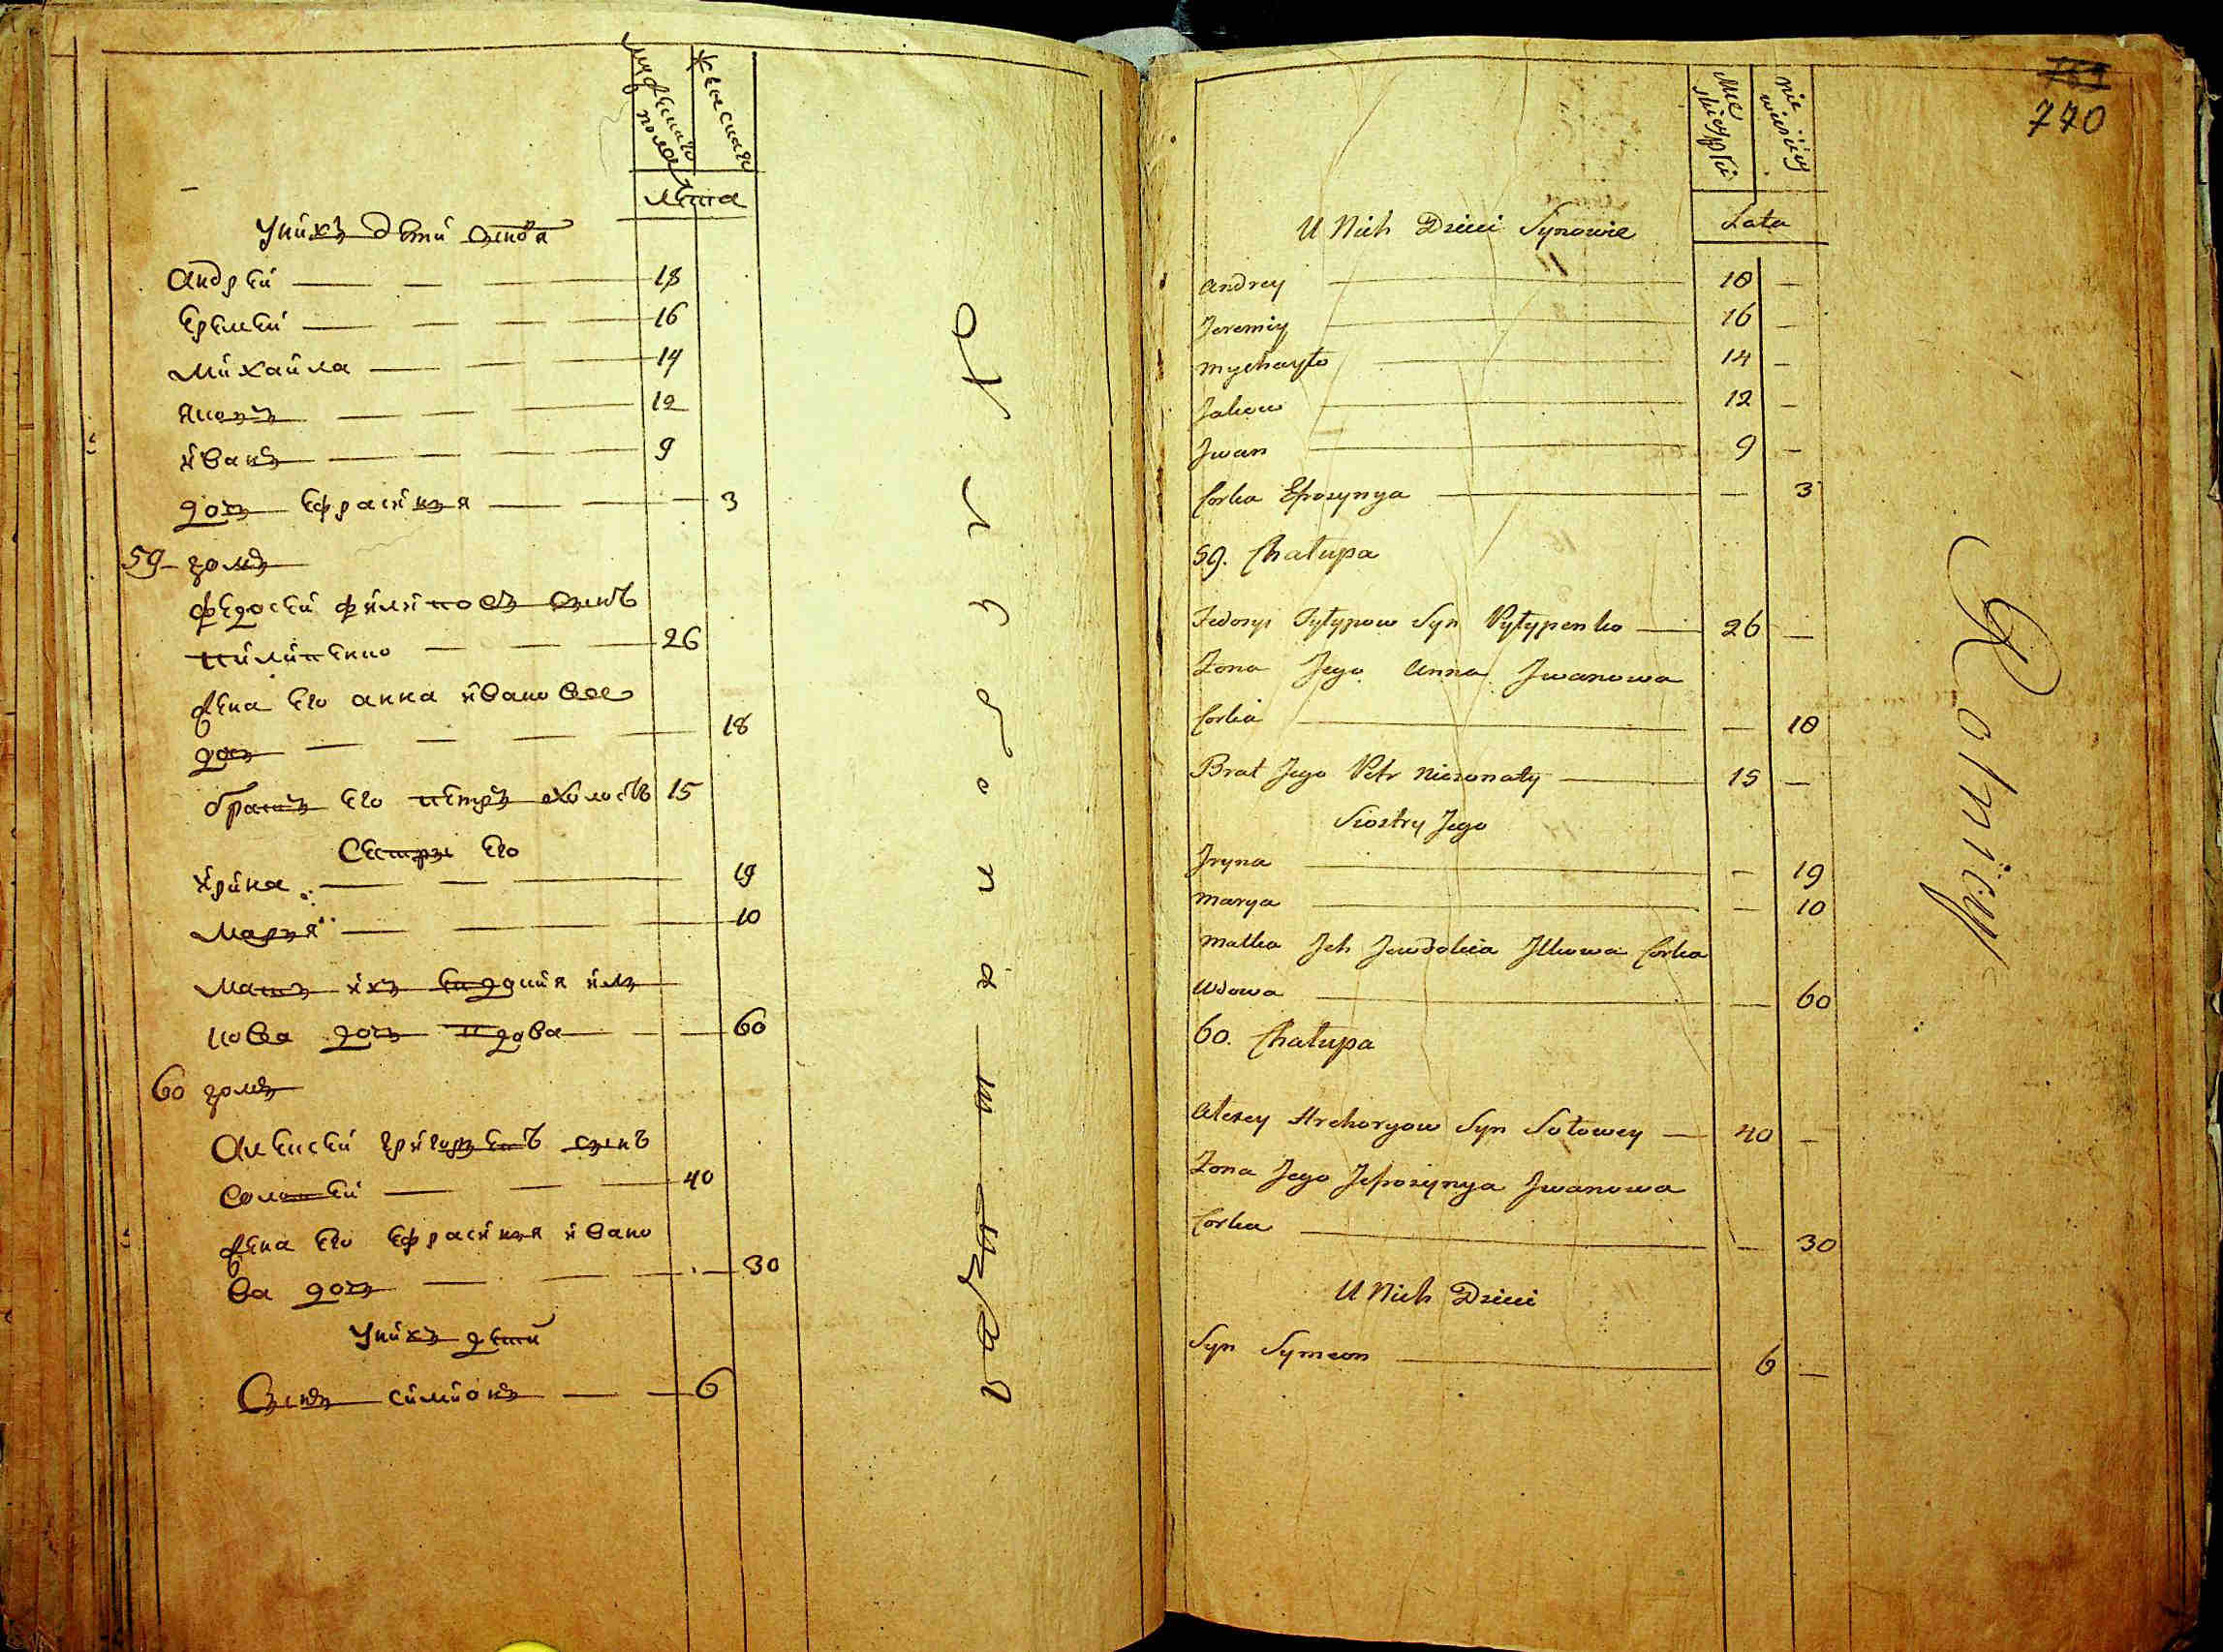 мужеска
полу
женска
лѣта
У нихъ дѣти сынова
Андрѣй — — — 18
Еремѣй — — — 16
Михайла — — — 14
Яковъ — — — 12
Иванъ — — — 9
дочъ Ефрасиния — — 3
59 домъ
Федосѣй Филиповъ сынъ
Пилипенко — — — 26
жена его Анна Иванова
дочъ — — — 18
братъ его Петръ холостъ 15
Сестры его
Ирина — — — 19
Мария — — — 10
Мать ихъ Иль
кова дочъ вдова — — 60
60 домъ
Алексѣй Григориевъ сынъ
— — — 40
жена его Ефрасиния Ивано
ва дочъ — — — 30
У нихъ дѣти
Сынъ Симионъ — — 6
770
Męskiey płci
Lata
U Nich Dzieci Synowie
Andrey — 18 —
Jeremiy — 16 —
Mychayło — 14 —
Jakow — 12 —
Jwan — 9 —
Corka Eprosynya — — 3
59. Chałupa
Fedosyi Fyłypow Syn Pyłypenko — 26 —
Zona Jego Anna Jwanowa
Corka — — 18
Brat Jego Petr Niezonaty — 15 —
Siostry Jego
Jryna — — 19
Marya — — 10
Matka Jch Jewdokia Jlkowa Corka
Wdowa — — 60
60. Chałupa
Alexey Hrehoryow Syn Sołowey — 40 —
Zona Jego Jefrosynya Jwanowa
Corka — — 30
U Nich Dzieci
Syn Symeon — 6 —
Rolnicy